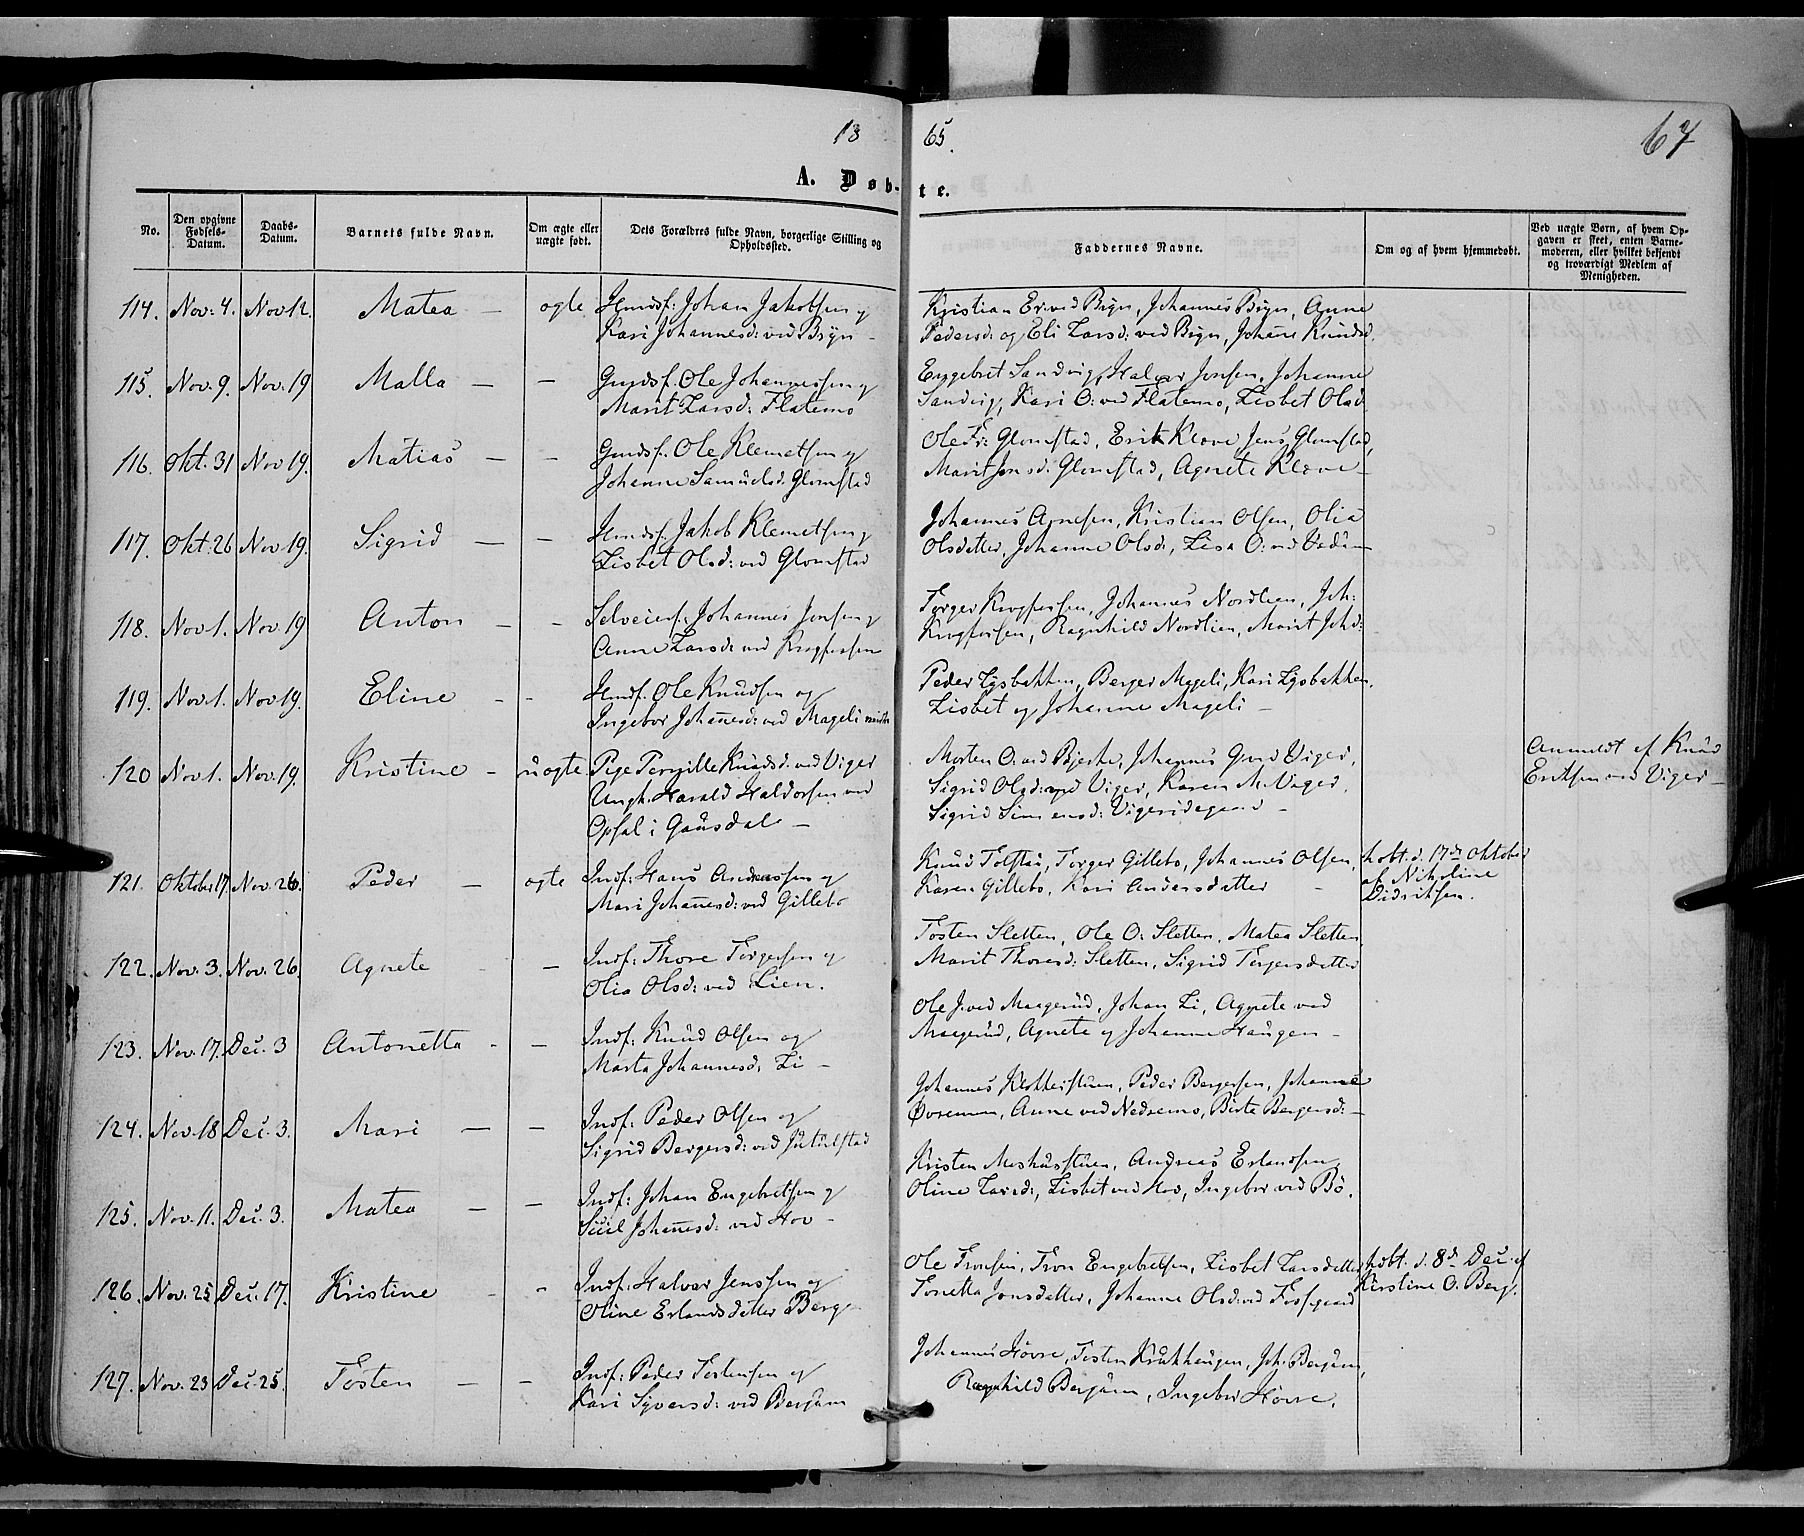 18 65.
67
A. Døb-te.
No. Den opgivne Fødsels-Datum. Daabs-Datum. Barnets fulde Navn. Om ægte eller uægte født. Dets Forældres fulde Navn, borgerlige Stilling og Opholdssted. Faddernes Navne. Om og af hvem hjemmedøbt. Ved uægte Børn, af hvem Opgaven er skeet, enten Barnemoderen, eller hvilket bekjendt og troværdigt Medlem af Menigheden.
114. Nov: 4. Nov 12. Matea — ogte Huusf: Johan Jakobsen og Kristian Er: ved Bryn, Johannes Bryn, Anne
Kari Johannesd: ved Bryn - Pedersd: og Eli Larsd: ved Bryn, Johane Knudsd.
115. Nov: 9. Nov: 19 Malla — — Gmdsf. Ole Johannessen og Engebret Sandvig, Halvor Jensen, Johanne
Marit Larsd: Flatemo Sandvig, Kari O: ved Flatemo, Lisbet Olsd
116. Okt. 31 Nov 19. Matias — — Gmdsf. Ole Klemetsen og Ole Fr: Glomstad, Erik Kløve, Jens Glomstad,
Johanne Samuelsd. Glomstad Marit Jensd: Glomstad, Agnete Kløve —
117. Okt: 26 Nov. 19. Sigrid — — Hmdsf. Jakob Klemetsen og Johannes Arnesen, Kristian Olsen, Olia
Lisbet Olsd: ved Glomstad Olsdatter, Johanne Olsd:, Lisa O: ved
118. Nov 1. Nov 19 Anton — — Selveierf: Johannes Jonsen og Torger Krogfossen, Johannes Nordlien, Joh:
Anne Larsd: ved Krogfossen Krogfossen, Ragnhild Nordlien, Marit Johd:
119. Nov. 1. Nov 19. Eline - - Hmdf: Ole Knudsen og Peder Lysbakken, Berger Mageli, Kari Lysbakken,
Ingebor Johannesd: ved Mageli Lisbet og Johanne Mageli —
120 Nov 1. Nov. 19. Kristine - uogte. Pige Pernille Knudsd. ved Viger Morten O. ved Bjerke, Johannes Viger, Anmeldt af Knud
Ungk. Harald Haldorsen ved Sigrid Olsd: ved Viger, Karen M. Viger, Eriksen ved Viger —
Opsal i Gausdal — Sigrid Simensd: Vigeridegaard —
121. Oktober 17. Nov. 26. Peder — ogte Indf: Hans Anderssen og Knud Tolstad, Torger Gillebo, Johannes Olsen, hdbt. d. 17de Oktober
Mari Johanesd: ved Gillebo Karen Gillebo, Kari Andersdatter — af Nikoline
Didriksen.
122. Nov. 3. Nov. 26. Agnete - — Indf: Thore Torgersen og Tosten Sletten, Ole O: Sletten, Matea Sletten,
Olia Olsd: ved Lien. Marit Thoresd: Sletten, Sigrid Torgersdatter
123. Nov. 17. Dec. 3 Antonetta - — Indf: Knud Olsen og Ole J. ved Maagerud, Johan Li, Agnete ved
Marta Johannesd. Li — Maagerud, Agnete og Johanne Haugen —
124. Nov. 18 Dec. 3. Mari — — Indf: Peder Olsen og Johannes Klokkerstuen, Peder Bergersen, Johanne
Sigrid Bergersd: ved Jutulstad Øvremoen, Anne ved Nedremo, Birte Bergersd: —
125. Nov. 11. Dec. 3. Matea — — Indf: Johan Engebretsen og Kristen Moshusstuen, Andreas Erlandsen,
Siul Johannesd: ved Hov - Oline Larsd:, Lisbet ved Hov, Ingebor ved Bø.
126. Nov. 25 Dec. 17. Kristine - - Indf: Halvor Jenssen og Ole Tronsen, Tron Engebretsen, Lisbet Larsdatter hdbt. d. 8de Dec: af
Oline Erlandsdatter Berg - Tonetta Jonsdatter, Johanne Olsd: ved Fossegaard Kirstine O. Berg.
127. Nov. 23 Dec. 25. Tosten — — Indf: Peder Tostensen og Johannes Hovre, Tosten Krukhaugen, Joh. Berjum,
Kari Syversd: ved Berjum Ragnhild Berjum, Ingebor Hovre.